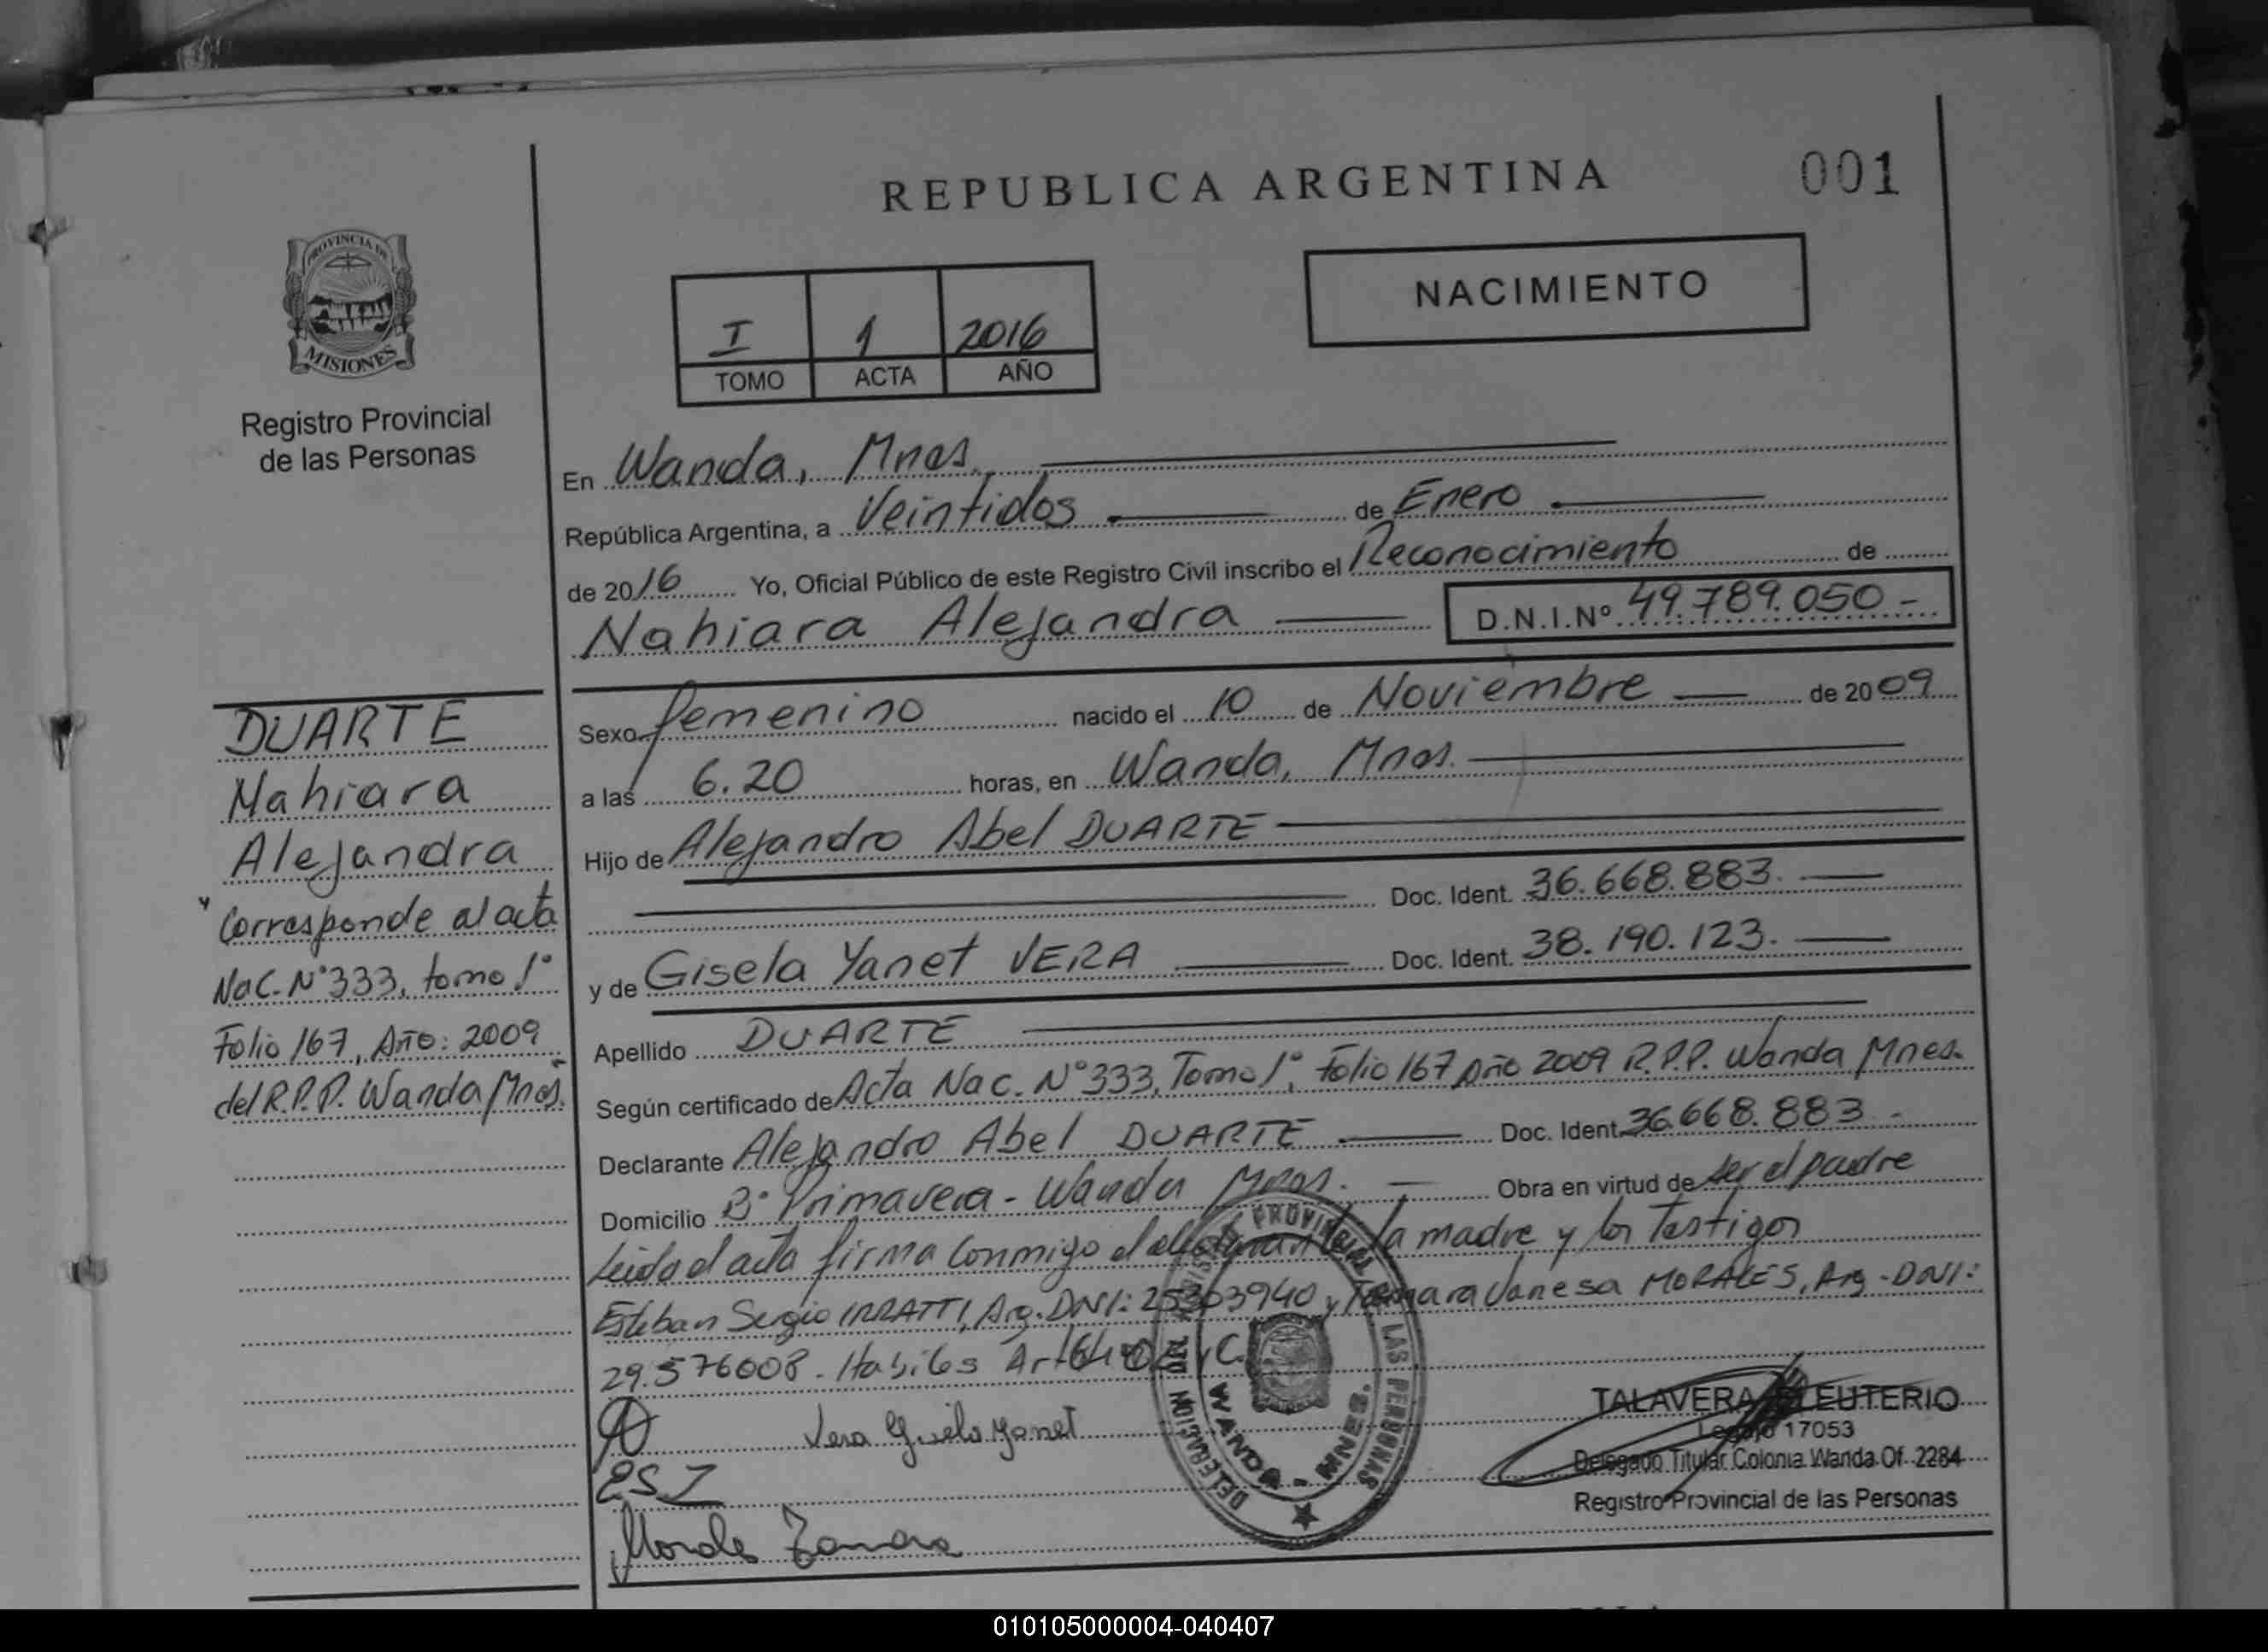 REPUBLICA ARGENTINA
001
PROVINCIA DE
MISIONES
Registro Provincial
de las Personas
NACIMIENTO
I 1 2016
TOMO ACTA AÑO
En Wanda, Mnes.
República Argentina, a Veintidos de Enero
de 2016 Yo, Oficial Público de este Registro Civil inscribo el Reconocimiento de
Nahiara Alejandra D.N.I.Nº 49.789.050-
DUARTE
Nahiara
Alejandra
Corresponde al acta
Nac. N°333, tomo 1°
Folio 167, Año: 2009
del R.P.P. Wanda Mnes.
Sexo femenino nacido el 10 de Noviembre de 2009
a las 6.20 horas, en Wanda, Mnes.
Hijo de Alejandro Abel DUARTE
Doc. Ident. 36.668.883.
y de Gisela Yanet VERA Doc. Ident. 38.190.123.
Apellido DUARTE
Según certificado de Acta Nac. N°333, Tomo 1°, Folio 167 Año 2009 R.P.P. Wanda Mnes.
Declarante Alejandro Abel DUARTE Doc. Ident. 36.668.883-
Domicilio B° Primavera - Wanda Mnes. Obra en virtud de ser el padre
Leida el acta firma conmigo el declarante la madre y los Testigos
Esteban Sergio IRRATTI, Arg. DNI: 25303940 y Tamara Vanesa MORALES, Arg. - DNI:
29.576008. Habiles
Vera Gisela Yanet
ESI
Morales Tamara
DELEGACION DEL REGISTRO PROVINCIAL DE LAS PERSONAS
WANDA - MNES.
TALAVERA ELEUTERIO
Legajo 17053
Delegado Titular Colonia Wanda Of. 2284
Registro Provincial de las Personas
010105000004-040407